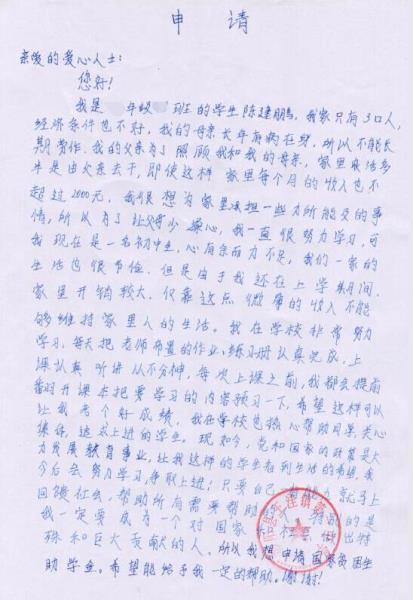 申 请
亲爱的爱心人士:
您好!
我是 年级 班的学生陈建鹏,我家只有3口人,
经济条件也不好,我的母亲长年有病在身,所以不能长
期劳作,我的父亲为了照顾我和我的母亲,家里农活多
半是由父亲去干,即使这样 家里每个月的收入也不
超过2000元,我很想为家里承担一些力所能及的事
情,所以为了让父母少操心,我一直很努力学习,可
我现在是一名初中生,心有余而力不足,我们一家的
生活也很节俭,但是由于我还在上学期间,
家里开销较大,仅靠这点微薄的收入不能
够维持家里人的生活。我在学校非常努力
学习,每天把老师布置的作业,练习册认真完成,上
课认真听讲从不分神,每次上课之前,我都会提前
翻开课本把要学习的内容预习一下,希望这样可以
让我考个好成绩,我在学校也热心帮助同学,关心
集体,追求上进的学生。现如今,党和国家的政策是大
力发展教育事业,让我这样的学生看到生活的希望,我
今后会努力学习,争取上进!只要自己 能力就马上
回馈社会,帮助所有需要帮助的人,
我一定要成为一个对国家 社会 做出特
殊和巨大贡献的人。所以我想申请国家贫困生
助学金。希望能给予我一定的帮助。谢谢!